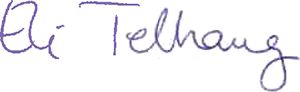 Eli Telhaug